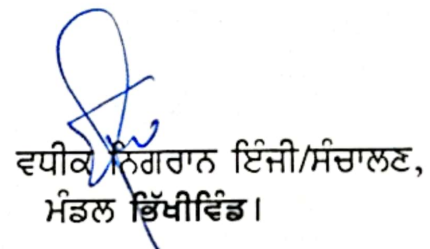 ਵਧੀਕ ਨਿਗਰਾਨ ਇੰਜੀ/ਸੰਚਾਲਣ,
ਮੰਡਲ ਭਿੱਖੀਵਿੰਡ।